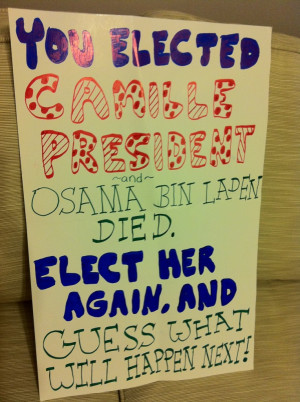 YOU ELECTED
CAMILLE
PRESIDENT
~and~
OSAMA BIN LADEN
DIED.
ELECT HER
AGAIN, AND
GUESS WHAT
WILL HAPPEN NEXT!